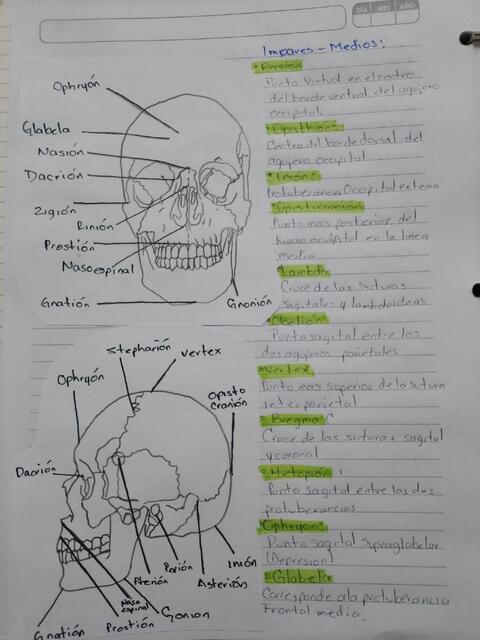 DÍA MES AÑO
Impares - Medios:
Ophryón
Glabela
Nasión
Dacrión
Zigión
Rinión
Prostión
Nasoespinal
Gnatión
Gnonión
Stephañón
Vertex
Ophryón
Opisto
cranión
Dacrión
Inión
Asterión
Porión
Pterión
Gonion
Naso
espinal
Prostión
Gnatión
Punto Virtual en el centro
del borde ventral del agujero
occipital
Opisthión:
Centro del borde dorsal del
agujero occipital
Inión:
Protuberancia Occipital externa
Opistocranión
Punto mas posterior del
hueso occipital en la linea
media
Lambda
Cruce de las suturas
sagitales y lambdoideas
Obelión:
Punto sagital entre los
dos agujeros parietales
Vertex
Punto mas superior de la sutura
interparietal
Bregma
Cruce de las suturas sagital
y coronal
Metopión
Punto sagital entre las dos
protuberancias
Ophryon:
Punto sagital supraglabelar
(Depresion)
Glabela
Corresponde a la protuberancia
Frontal media.